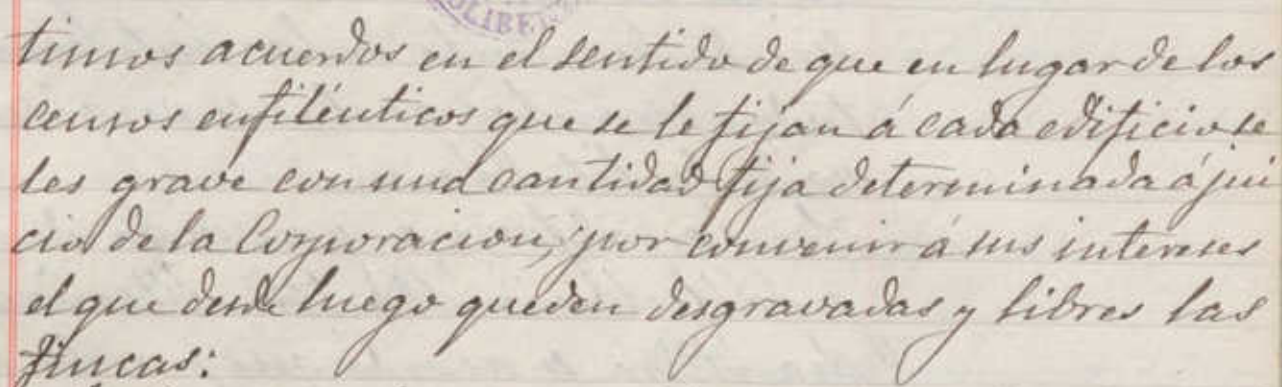 OLIBE
timos acuerdos en el sentido de que en lugar de los
censos enfiléuticos que se le fijan á cada edificio se
les grave con una cantidad fija determinada á jui
cio de la Corporacion, por convenir á sus intereses
el que desde luego queden desgravadas y libres las
fincas: